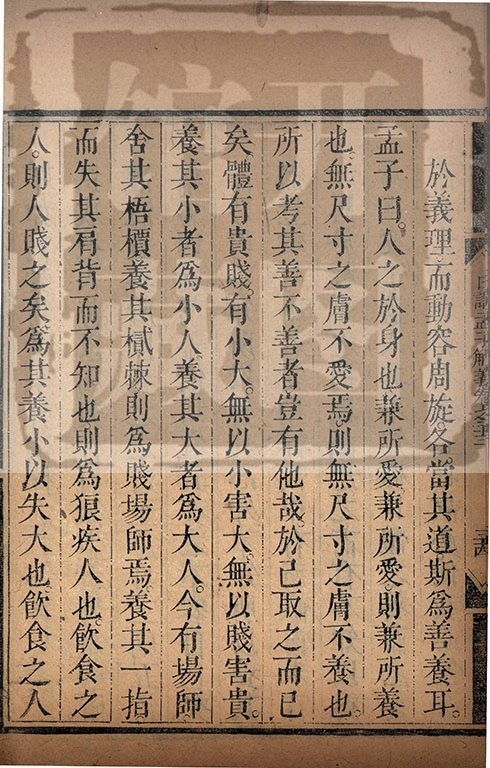 於義理而動容周旋各當其道斯爲善養耳。
孟子曰。人之於身也兼所愛兼所愛。則兼所養
也。無尺寸之膚不愛焉。則無尺寸之膚不養也。
所以考其善不善者豈有他哉於己取之而已
矣。體有貴賤。有小大。無以小害大。無以賤害貴。
養其小者爲小人。養其大者爲大人。今有場師
舍其梧檟養其樲棘則爲賤場師焉養其一指
而失其肩背而不知也則爲狼疾人也。飲食之
人。則人賤之矣。爲其養小以失大也飲食之人
日講孟子解義卷之